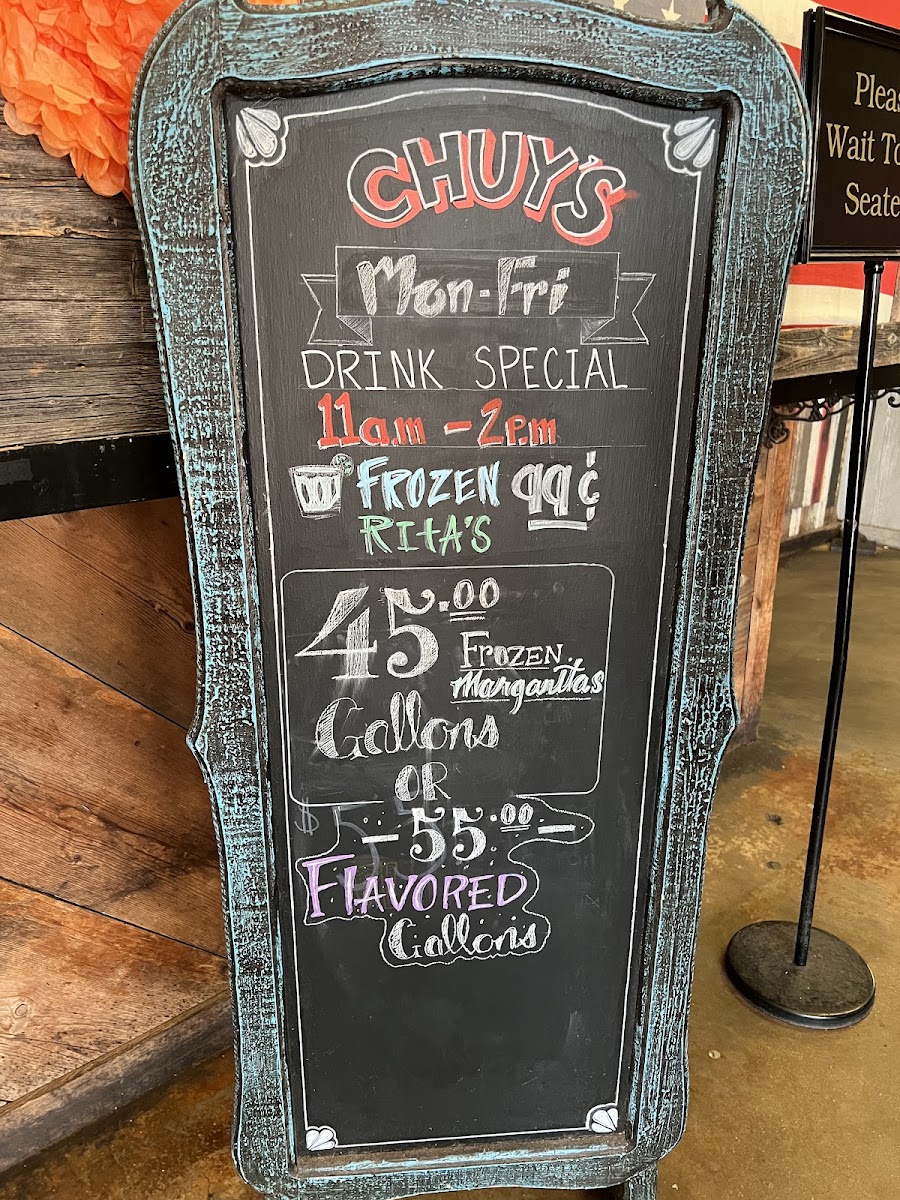 CHUY'S
Mon-Fri
DRINK SPECIAL
11am - 2pm
FROZEN 99¢
RITA'S
45.00
FROZEN
Margaritas
Gallons
OR
$ -55.00-
FLAVORED
Gallons
Wait To